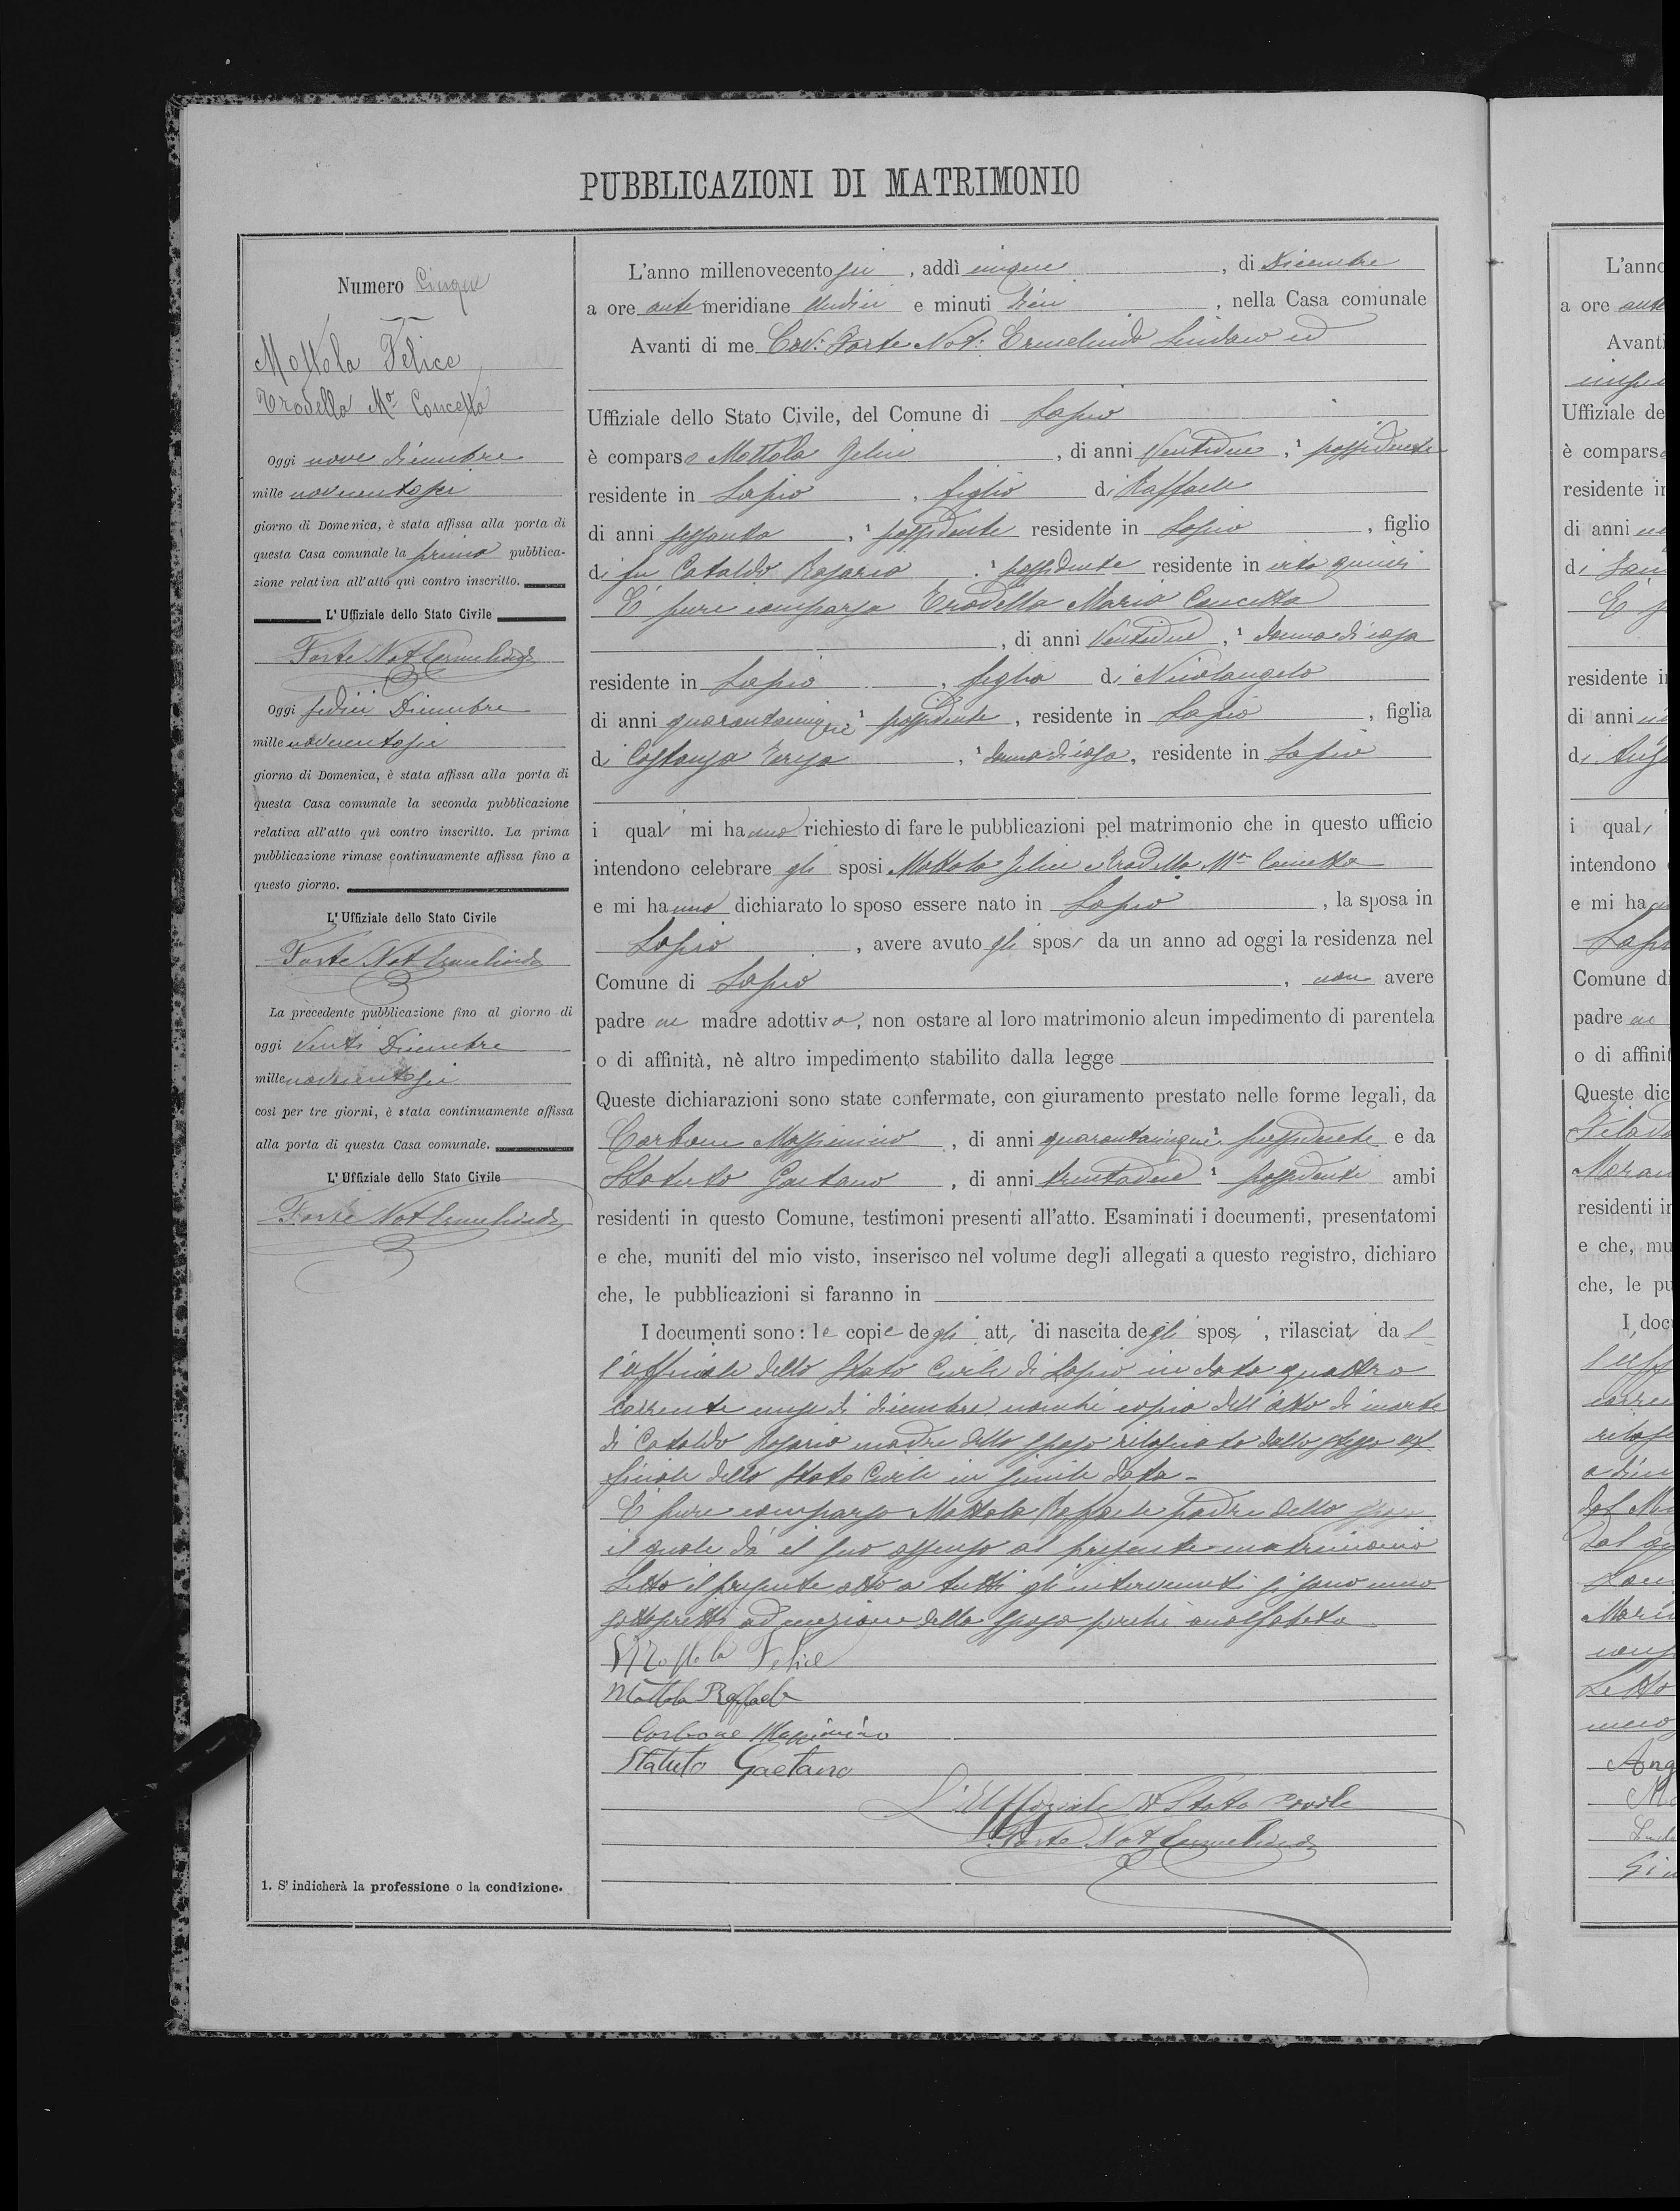 PUBBLICAZIONI DI MATRIMONIO
Numero Cinque
Mottola Felice
Trodella Mª Concetta
Oggi nove dicembre
mille novecentosei
giorno di Domenica, è stata affissa alla porta di
questa Casa comunale la prima pubblica-
zione relativa all'atto quì contro inscritto.
L'Uffiziale dello Stato Civile
Forte Not Ermelindo
Oggi sedici Dicembre
mille novecentosei
giorno di Domenica, è stata affissa alla porta di
questa Casa comunale la seconda pubblicazione
relativa all'atto quì contro inscritto. La prima
pubblicazione rimase continuamente affissa fino a
questo giorno.
L'Uffiziale dello Stato Civile
Forte Not Ermelindo
La precedente pubblicazione fino al giorno di
oggi Venti Dicembre
mille novecentosei
così per tre giorni, è stata continuamente affissa
alla porta di questa Casa comunale.
L'Uffiziale dello Stato Civile
Forte Not Ermelindo
1. S'indicherà la professione o la condizione.
L'anno millenovecento sei, addì cinque, di Dicembre
a ore antemeridiane undici e minuti dieci, nella Casa comunale
Avanti di me Cav: Forte Not: Ermelindo Sindaco ed
Uffiziale dello Stato Civile, del Comune di Lapio
è comparso Mottola Felice, di anni Ventidue, ¹ possidente
residente in Lapio, figlio di Raffaele
di anni sessanta, ¹ possidente residente in Lapio, figlio
di fu Cataldo Rosaria, ¹ possidente residente in vita quivi
È pure comparsa Trodella Maria Concetta
, di anni Ventidue, ¹ donna di casa
residente in Lapio, figlia di Nicolangelo
di anni quarantacinque ¹ possidente, residente in Lapio, figlia
di Costanza Teresa, ¹ donna di casa, residente in Lapio
i quali mi hanno richiesto di fare le pubblicazioni pel matrimonio che in questo ufficio
intendono celebrare gli sposi Mottola Felice e Trodella Mª Concetta
e mi hanno dichiarato lo sposo essere nato in Lapio, la sposa in
Lapio, avere avuto gli sposi da un anno ad oggi la residenza nel
Comune di Lapio, non avere
padre ne madre adottivo, non ostare al loro matrimonio alcun impedimento di parentela
o di affinità, nè altro impedimento stabilito dalla legge
Queste dichiarazioni sono state confermate, con giuramento prestato nelle forme legali, da
Carbone Massimino, di anni quarantacinque ¹ possidente e da
Statuto Gaetano, di anni trentadue ¹ possidente ambi
residenti in questo Comune, testimoni presenti all'atto. Esaminati i documenti, presentatomi
e che, muniti del mio visto, inserisco nel volume degli allegati a questo registro, dichiaro
che, le pubblicazioni si faranno in
I documenti sono: le copie degli atti di nascita degli sposi, rilasciati dal
l'ufficiale dello Stato Civile di Lapio in data quattro
corrente mese di dicembre nonchè copia dell'atto di morte
di Cataldo Rosaria madre dello sposo rilasciato dallo stesso uf
ficiale dello Stato Civile in simile data.
È pure comparso Mottola Raffaele padre dello sposo
il quale dà il suo assenso al presente matrimonio
Letto il presente atto a tutti gli intervenuti si sono meco
sottoscritti ad eccezione della sposa perchè analfabeta
Mottola Felice
Mottola Raffaele
Carbone Massimino
Statuto Gaetano
L'Uffiziale di Stato Civile
Forte Not Ermelindo
L'anno
a ore ante
Avanti
Uffiziale de
è compars
residente in
di anni
di
È p
residente in
di anni
di
i quali
intendono
e mi ha
Lapi
Comune di
padre ne
o di affinit
Queste dic
residenti in
e che, mu
che, le pu
I doc
l'uff
corre
Letto
meco
Ang